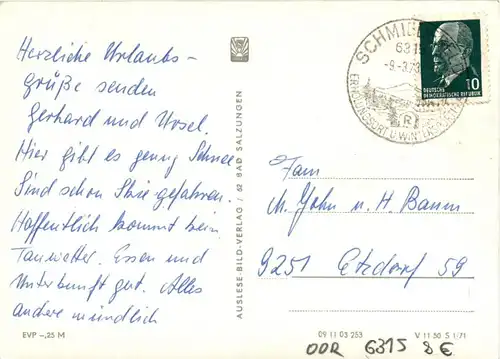 Herzliche Urlaubs-
grüße senden
Gerhard und Ursel.
Hier gibt es genug Schnee
Sind schon Skie gefahren.
Hoffentlich kommt kein
Tauwetter. Essen und
Unterkunft gut. Alles
andere mündlich
EVP –,25 M
AUSLESE-BILD-VERLAG / 62 BAD SALZUNGEN
6315
-9.-3.73
DEUTSCHE
DEMOKRATISCHE REPUBLIK
10
Fam
M. John u. H. Baum
9251 Etzdorf 59
09 11 03 253
V 11 50 S 1/71
DDR 6315 8 €